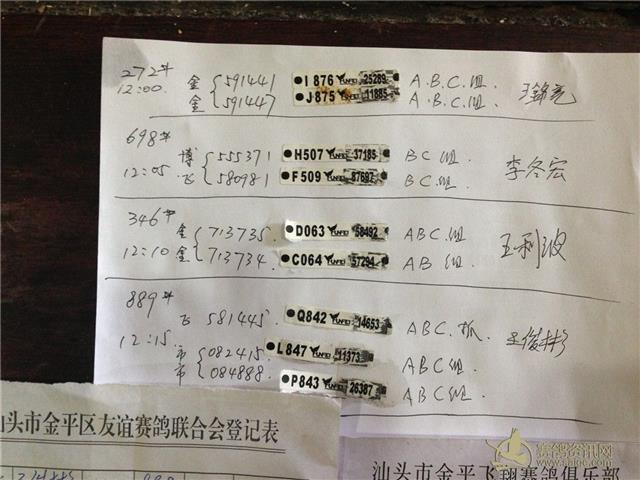 272# 金 591441 I 876 25289 A.B.C.组
12:00 金 591447 J875 11885 A.B.C.组
698# 博 555371 H507 37185 BC组 李冬宏
12:05 飞 580981 F509 87697 BC.组
346# 金 713735 D063 58492 ABC.组 王利波
12:10 金 713734 C064 57294 AB组
889# 飞 581445 Q842 14653 ABC.
12:15 市 082415 L847 11373 ABC组
市 084888 P843 26387 ABC组.
汕头市金平区友谊赛鸽联合会登记表
汕头市金平飞翔赛鸽俱乐部
赛鸽资讯网